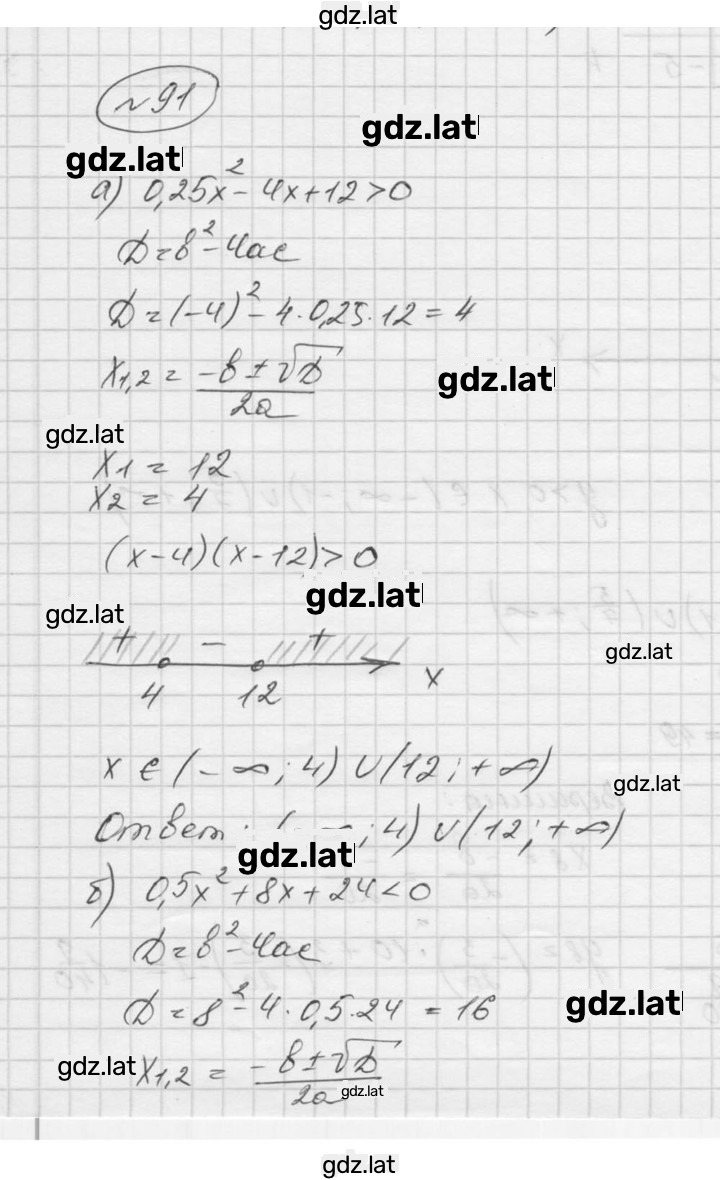 gdz.lat
№91
gdz.lat
gdz.lat
а) 0,25x² - 4x + 12 > 0
D = b² - 4ac
D = (-4)² - 4 · 0,25 · 12 = 4
x1,2 = (-b ± √D) / 2a
gdz.lat
gdz.lat
x1 = 12
x2 = 4
(x-4)(x-12) > 0
gdz.lat
gdz.lat
+ - +
gdz.lat
4 12 x
x ∈ (-∞; 4) ∪ (12; +∞)
gdz.lat
Ответ: (-∞; 4) ∪ (12; +∞)
gdz.lat
б) 0,5x² + 8x + 24 < 0
D = b² - 4ac
D = 8² - 4 · 0,5 · 24 = 16
gdz.lat
gdz.lat
x1,2 = (-b ± √D) / 2a
gdz.lat
gdz.lat